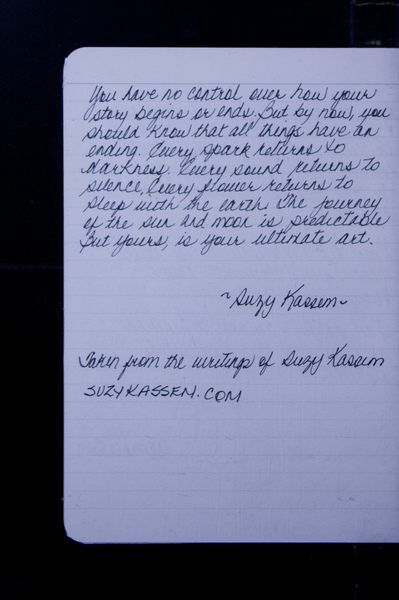 You have no control over how your
story begins or ends. But by now, you
should know that all things have an
ending. Every spark returns to
darkness. Every sound returns to
silence, Every flower returns to
sleep with the earth The journey
of the sun and moon is predictable
But yours, is your ultimate art.
~Suzy Kassem~
Taken from the writings of Suzy Kassem
SUZYKASSEM.COM